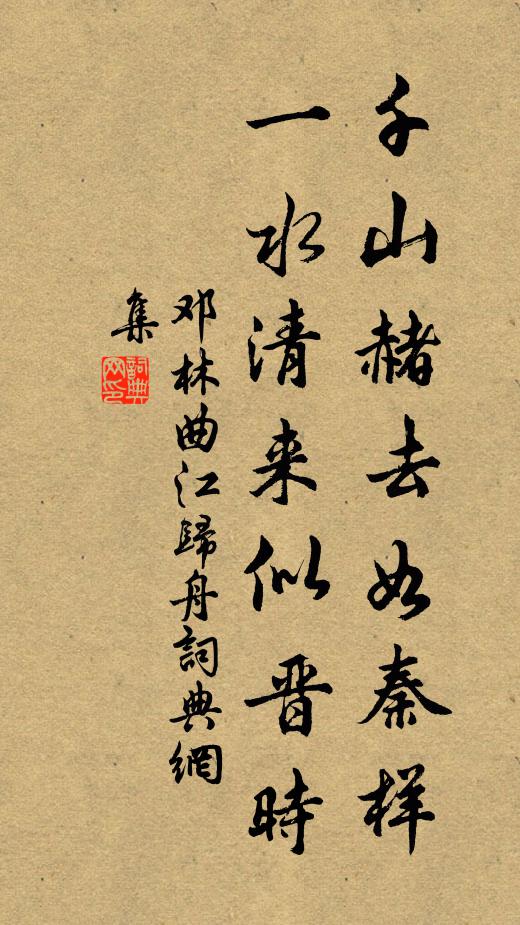 千山赭去如秦样
一水清来似晋時
邓林曲江歸舟詞典網
集
詞典
网印